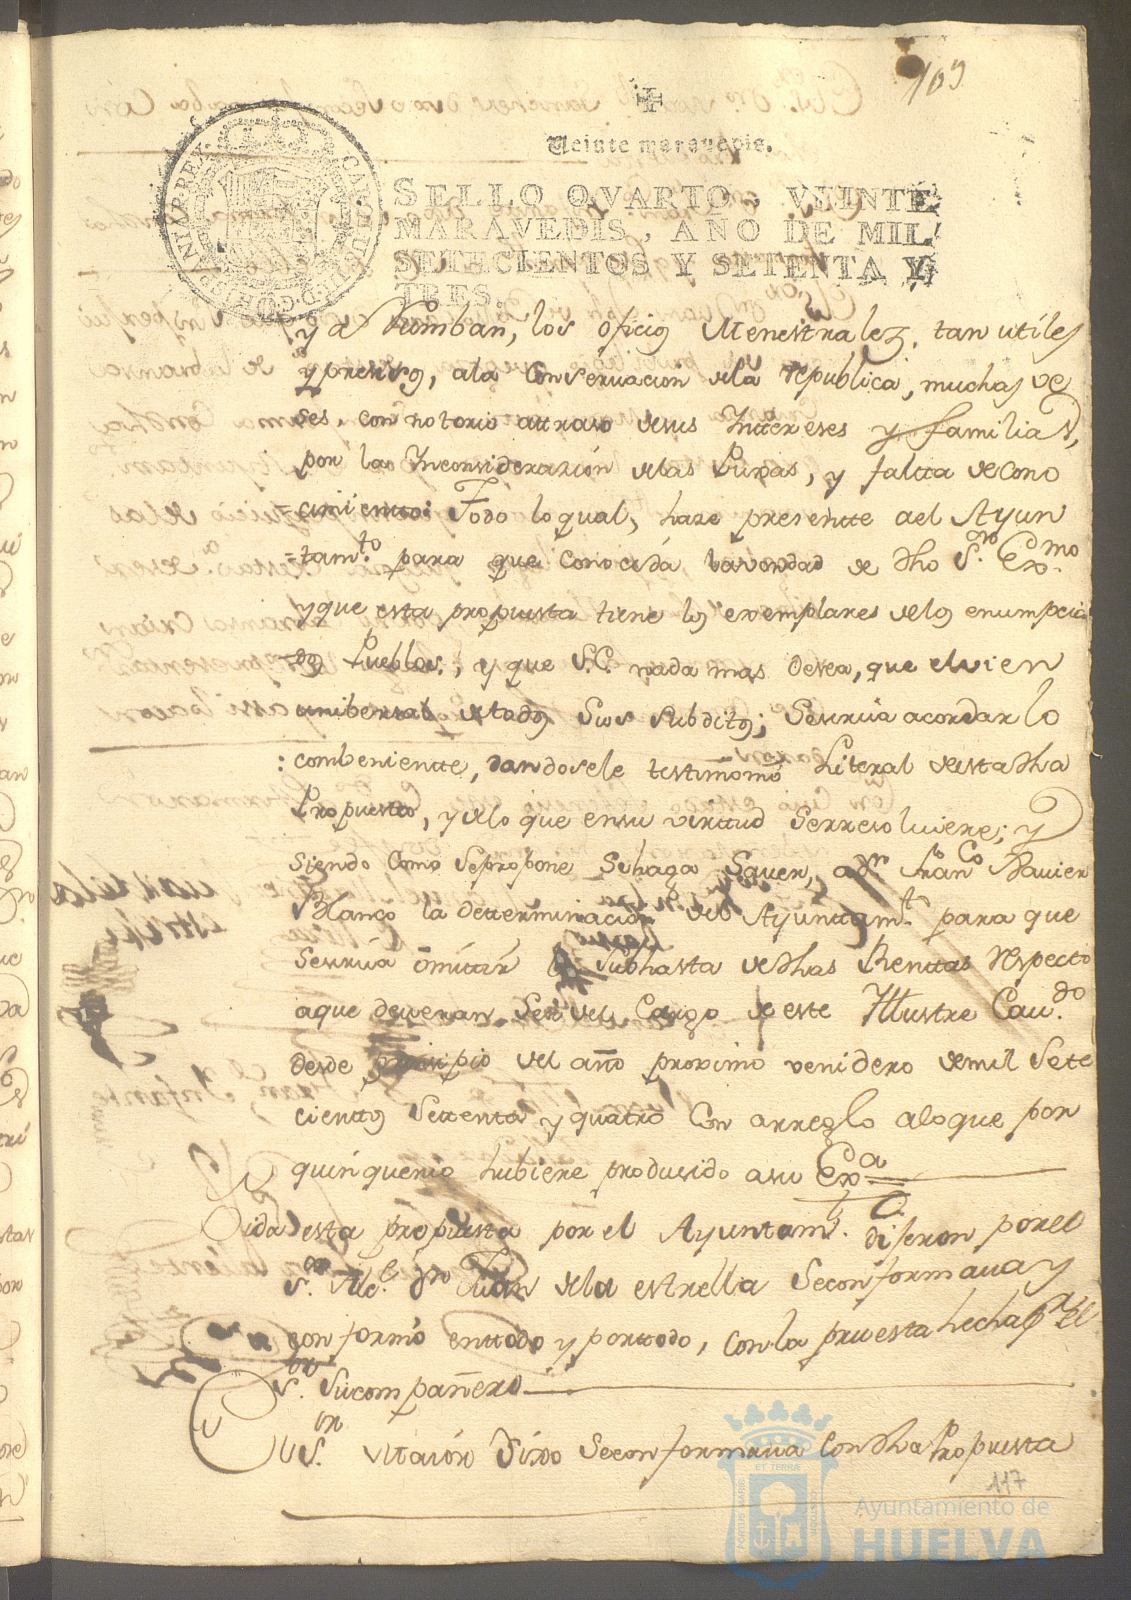 109
Veinte maravedis.
SELLO QVARTO, VEINTE
MARAVEDIS, AÑO DE MIL
SETECIENTOS Y SETENTA Y
TRES.
los oficios Menestrales, tan utiles
y presisos, ala Conservacion dela republica, muchas ve
ses, con notorio attraso desus Intereses y familias,
por las Inconsiderazión delas Puxas, y faltta decono
=cimientto: Todo lo qual, haze presentte ael Ayun
=tam.to para que conocida laverdad de dho S.or Ex.mo
y que esta propuesta tiene los exemplares delos enumpcia
dos Pueblos, y que S.E. nada mas desea, que elvien
unibersal detodos Sus Subditos; Serviria acordar lo
combenientte, dandosele testimonio Literal deesta dha
Propuesta, y delo que ensu virttud Serresolviere; y
siendo como Sepropone Sehaga Saver, a D.n Fran.co Xavier
Blanco la determinacion del Ayunttam.to para que
Serviria omitir la Subhasta dedhas Renttas Respecto
aque deveran Ser del Cargo de este Illustre Cav.do
desde principio del año proximo venidero demil Sete
cienttos Settenta y quatro Con arreglo aloque por
quinquenio hubiere produsido asu Ex.a
Oida esta propuesta por el Ayuntam.to dijeron por el
S.or Alc.e Juan dela estrella Seconformava y
conformó enttodo y porttodo, con la pruesta hecha p.r el
S.or Su compañero
El S.or Sixto Seconformava Con dha Propuesta
117
Ayuntamiento de
HUELVA